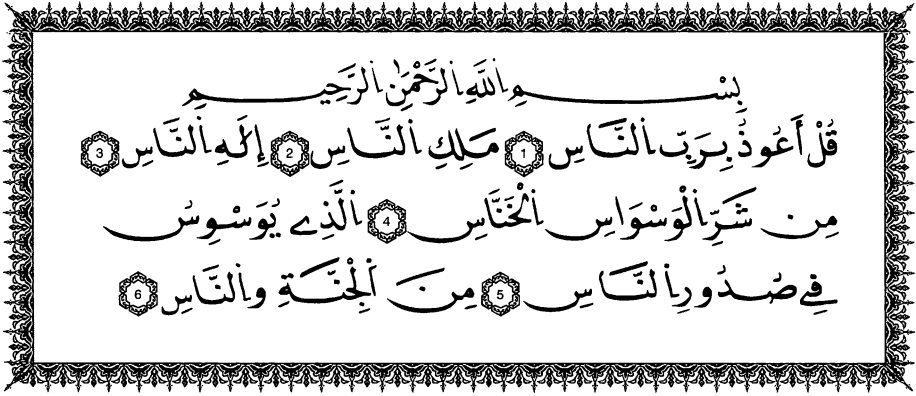 بِسْمِ اللَّهِ الرَّحْمَٰنِ الرَّحِيمِ
قُلْ أَعُوذُ بِرَبِّ النَّاسِ 1 مَلِكِ النَّاسِ 2 إِلَٰهِ النَّاسِ 3
مِن شَرِّ الْوَسْوَاسِ الْخَنَّاسِ 4 الَّذِے يُوَسْوِسُ
فِے صُدُورِ النَّاسِ 5 مِنَ الْجِنَّةِ وَالنَّاسِ 6